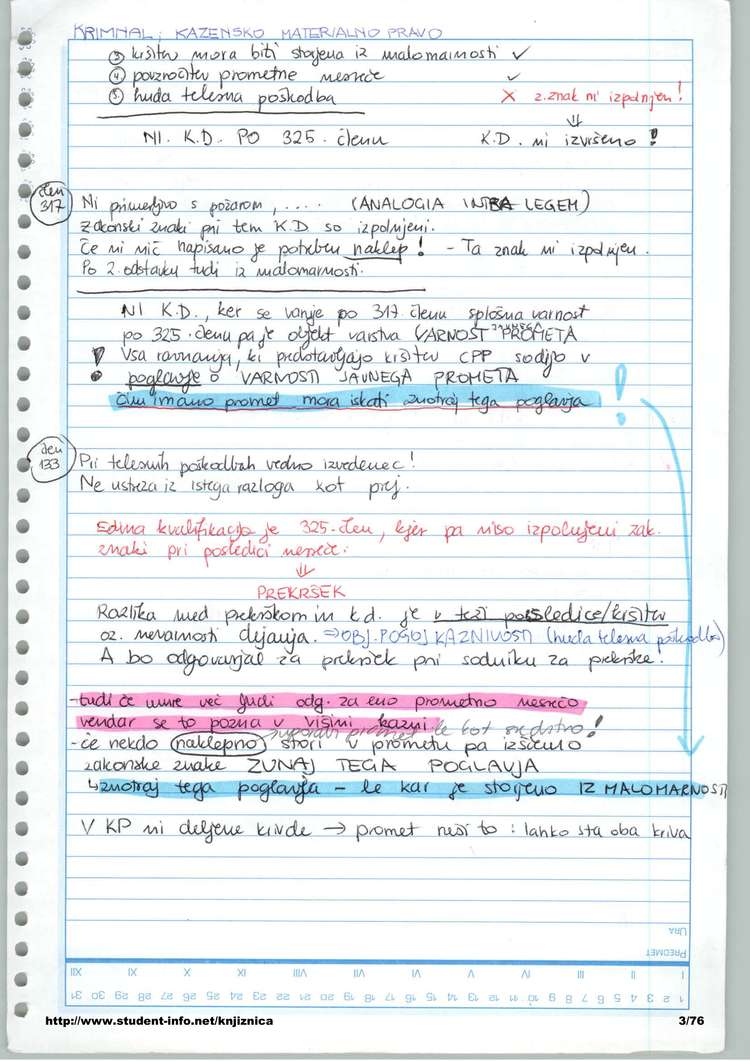 KRIMINAL; KAZENSKO MATERIALNO PRAVO
③ kršitev mora biti storjena iz malomarnosti ✓
④ povzročitev prometne nesreče ✓
⑤ huda telesna poškodba X 2. znak ni izpolnjen!
⇓
NI K.D. PO 325. členu K.D. ni izvršeno!
člen 317
Ni primerljivo s požarom, .... (ANALOGIA INTRA LEGEM)
Zakonski znaki pri tem K.D so izpolnjeni.
Če ni nič napisano je potreben naklep! - Ta znak ni izpolnjen.
Po 2. odstavku tudi iz malomarnosti.
NI K.D., ker se varuje po 317 členu splošna varnost
po 325. členu pa je objekt varstva VARNOST JAVNEGA PROMETA
! Vsa ravnanja, ki predstavljajo kršitev CPP sodijo v
poglavje o VARNOSTI JAVNEGA PROMETA
Čim imamo promet mora iskati znotraj tega poglavja !
člen 133
Pri telesnih poškodbah vedno izvedenec!
Ne ustreza iz istega razloga kot prej.
Edina kvalifikacija je 325. člen, kjer pa niso izpolnjeni zak.
znaki pri posledici nesreče.
⇓
PREKRŠEK
Razlika med prekrškom in k.d. je v teži posledice/kršitev
oz. nevarnosti dejanja. ⇒ OBJ. POGOJ KAZNIVOSTI (huda telesna poškodba)
A bo odgovarjal za prekršek pri sodniku za prekrške.
- tudi če umre več ljudi odg. za eno prometno nesrečo
vendar se to pozna v višini kazni.
promet le kot sredstvo!
- če nekdo naklepno stori v prometu pa iščemo
zakonske znake ZUNAJ TEGA POGLAVJA
↳ znotraj tega poglavja - le kar je storjeno IZ MALOMARNOSTI
V KP ni deljene krivde → promet reši to : lahko sta oba kriva
URA
PREDMET
I II III IV V VI VII VIII IX X XI XII
1 2 3 4 5 6 7 8 9 10 11 12 13 14 15 16 17 18 19 20 21 22 23 24 25 26 27 28 29 30 31
http://www.student-info.net/knjiznica 3/76